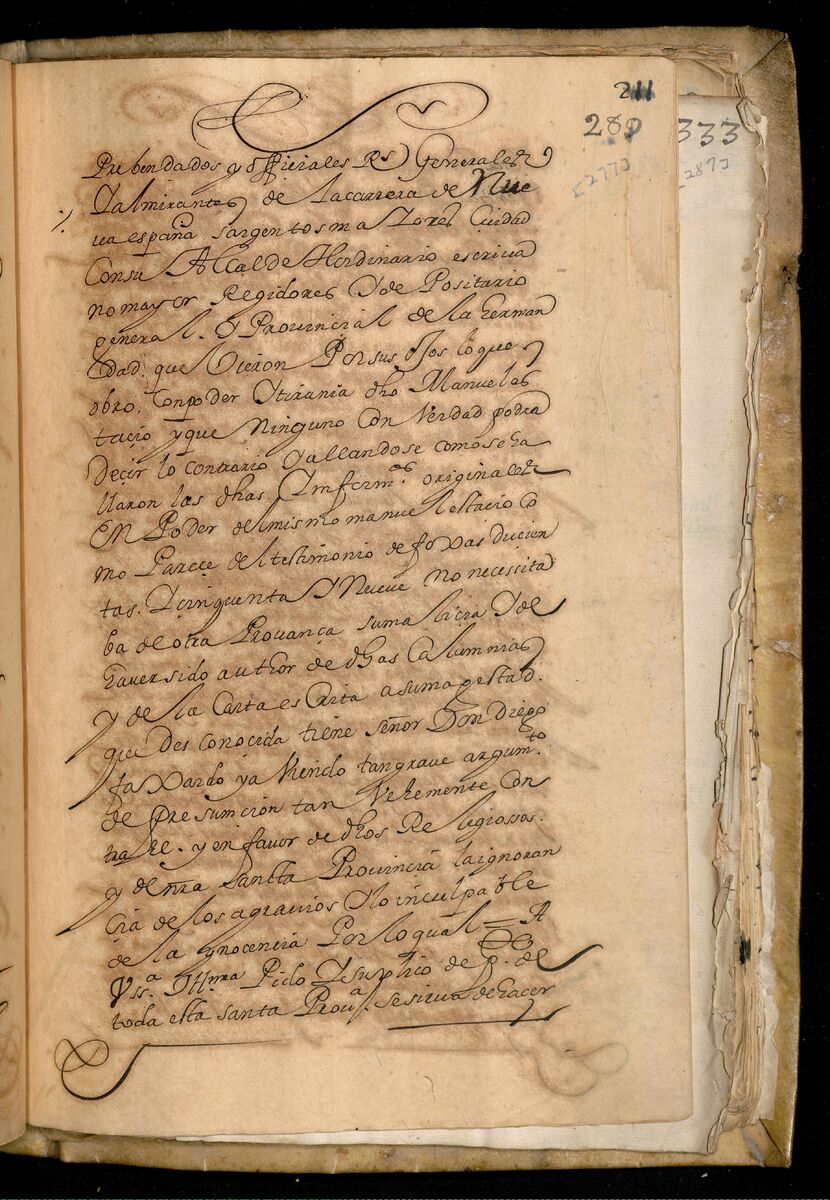 211
280 333
[277] [287]
Prebendados y officiales Rs Generales
Yalmirantes de Lacarrera de Nue
ua españa sargentosmaYores Ciudad
Consu Alcalde Hordinario escriua
no mayor Regidores Yde Positario
general. Y Provincial de la herman
dad. que Vieron Porsus oJos loque
obro. Conpoder Ytirania dho Manuel es
tacio y que Ninguno con Verdad podra
Decir lo contrario Yallandose comoseha
llaron las dhas Ynformes originales
en Poder delmismo manuel estacio Co
mo Parece del testimonio de foxas ducien
tas. Ycinquenta Y Nueve no necessita
ba de otra Prouança sumalicia Yde
hauersido author de dhas Calumnias
y de la Carta escrita asumagestad.
que Des conocida tiene señor Don diego
faxardo ya Viendo tangrave argumto
de presumcion tan Vehemente con
tra el. y en favor de dhos Religiossos.
y de nra Sancta Provincia laignoran
cia de los agravios Yloinculpable
de la ynocencia Porloqual = A
Vssa Illma Pido Ysuplico de p. de
toda esta santa Proua. sesirua dehacer